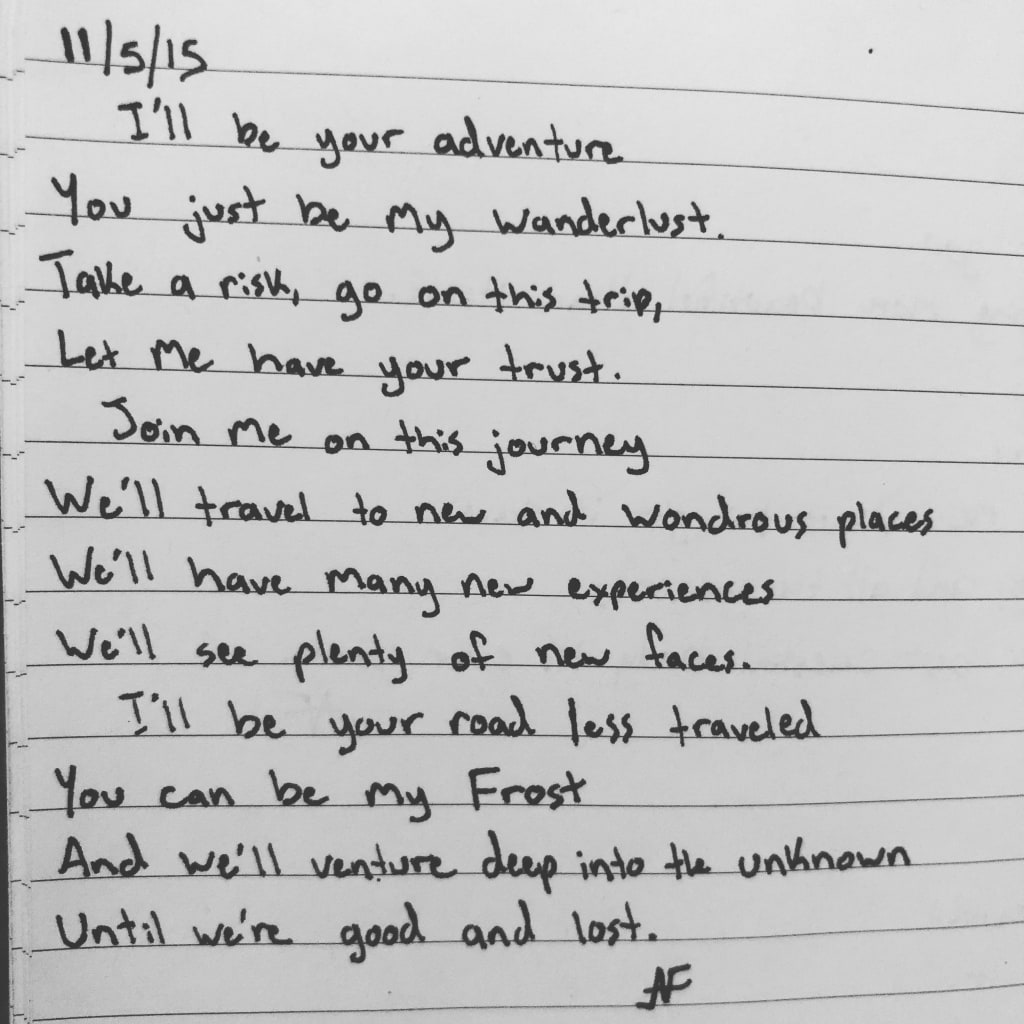 11/5/15
I'll be your adventure
You just be my wanderlust.
Take a risk, go on this trip,
Let me have your trust.
Join me on this journey
We'll travel to new and wondrous places
We'll have many new experiences
We'll see plenty of new faces.
I'll be your road less traveled
You can be my Frost
And we'll venture deep into the unknown
Until we're good and lost.
AF